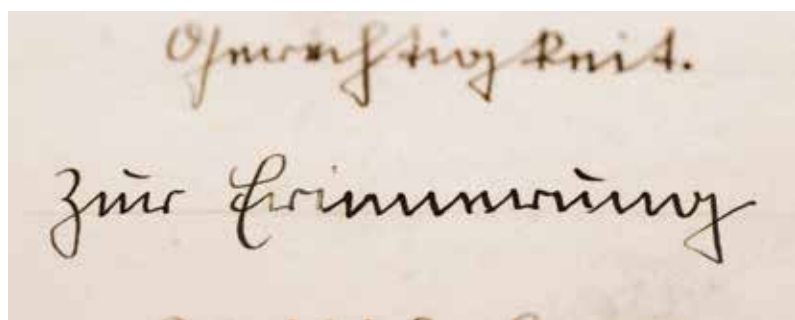 Gerechtigkeit.
Zur Erinnerung